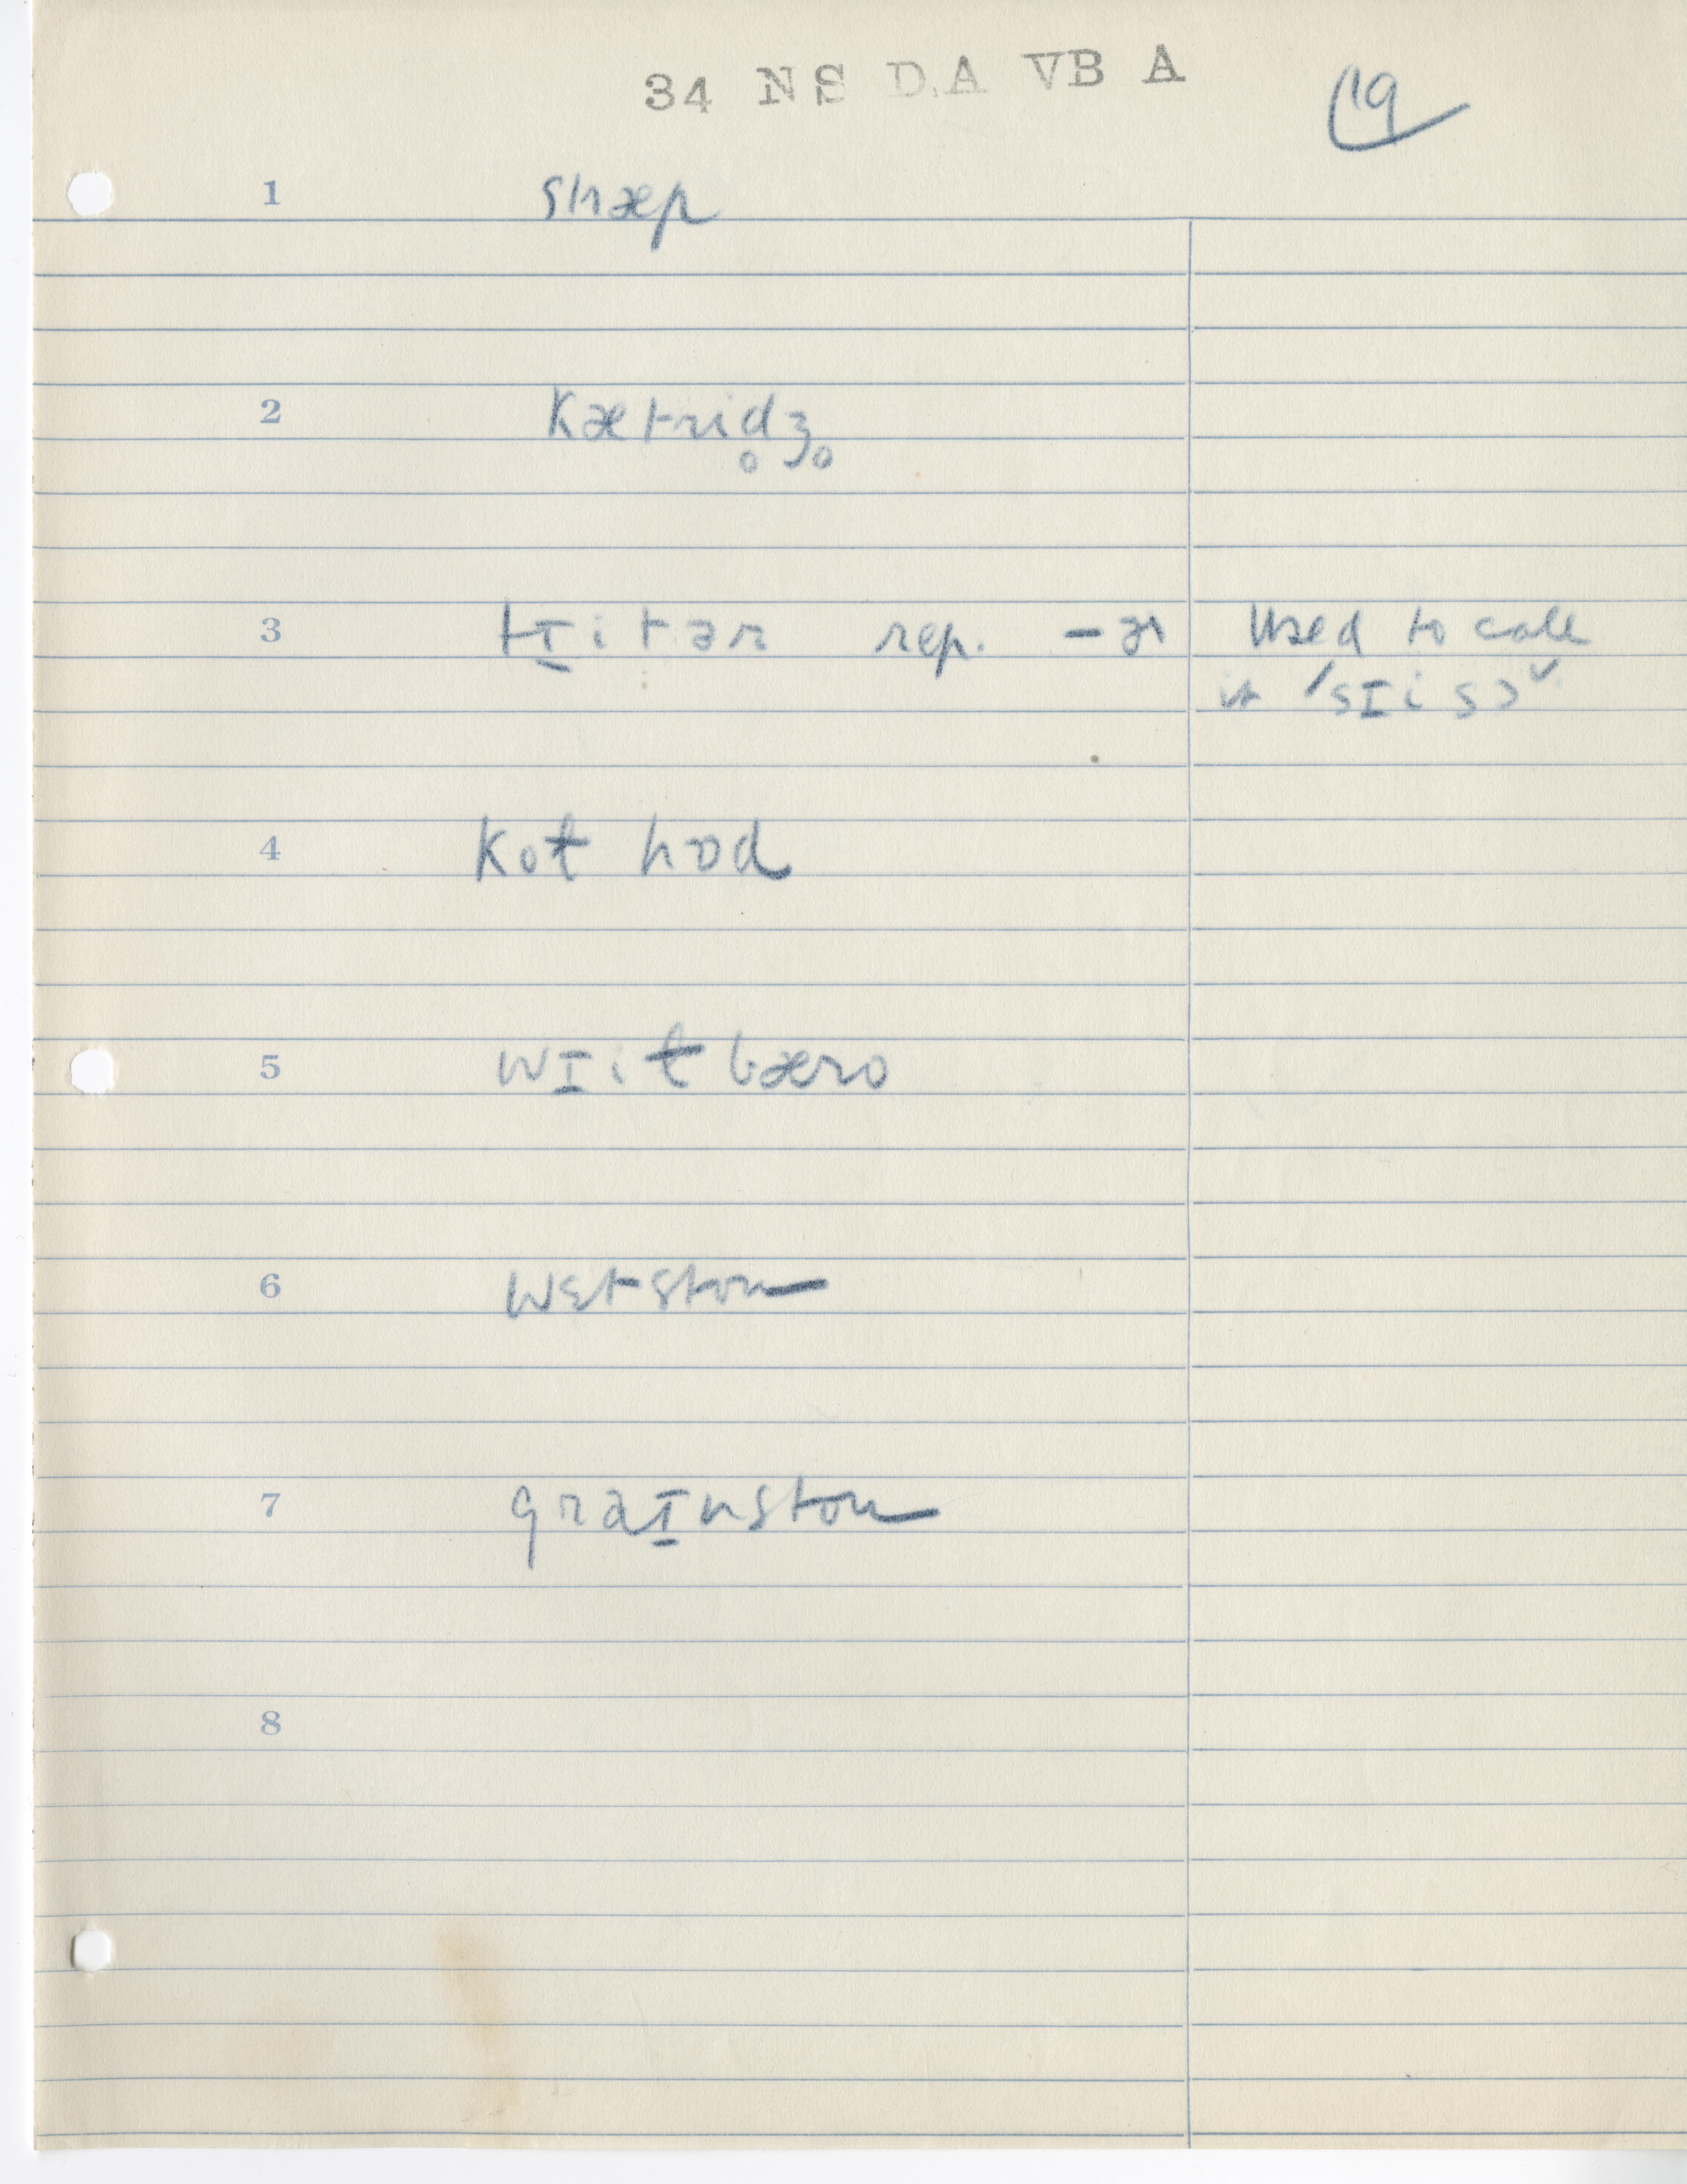 34 NS D.A VB A
19
1 snæp
2 kætridʒ̥
3 tɪitər rep. -ər Used to call
it 'sɪisɔ
4 kot hɒd
5 wɪit bæro
6 wɛt ston
7 graɪnston
8